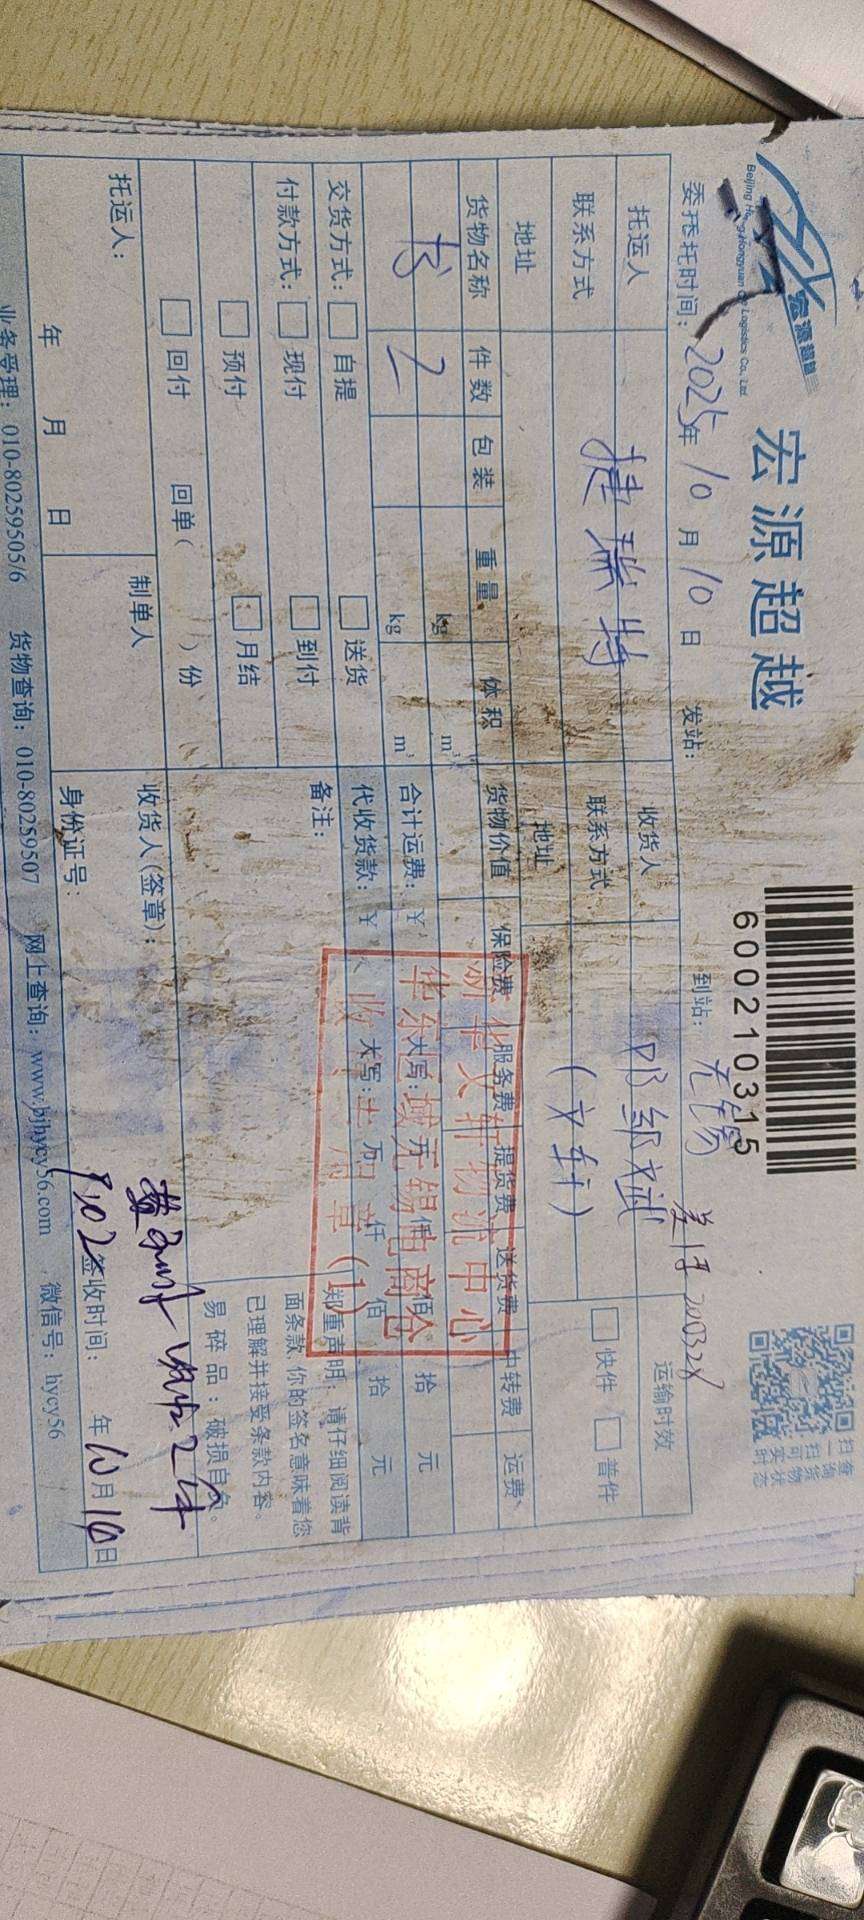 宏源超越
600210315
扫查
一询
扫货
可物
实状
时态
委托时间：2025年10月10日 发站： 到站：无锡
托运人 捷瑞特 收货人 运输时效
联系方式 联系方式 （文轩） 快件 普件
地址 地址
货物名称 件数 包装 重量 体积 货物价值 保险费 服务费 提货费 送货费 中转费 运费
书 2 kg m³ 合计运费：¥ 大写： 万 仟 佰 拾 元
kg m³ 代收货款：¥ 大写： 万 仟 佰 拾 元
新华文轩物流中心
华东区域无锡电商仓
(1)
交货方式： 自提 送货 备注： 郑重声明：请仔细阅读背
面条款，你的签名意味着您
已理解并接受条款内容。
易碎品：破损自负。
付款方式： 现付 到付
预付 月结
回付 回单（ ）份
托运人： 制单人 收货人（签章）：
年 月 日 身份证号： 签收时间： 年10月16日
业务受理：010-80259505/6 货物查询：010-80259507 网上查询：www.bjhycy56.com 微信号：hycy56